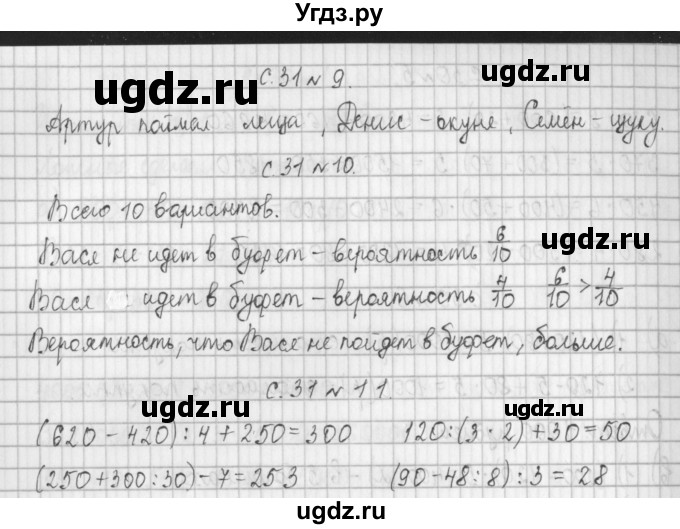 Угдз.ру
с. 31 № 9.
Артур поймал леща, Денис - окуня, Семён - щуку.
с. 31 № 10.
Всего 10 вариантов.
Вася не идет в буфет - вероятность 6/10
Вася идет в буфет - вероятность 4/10 6/10 > 4/10
Вероятность, что Вася не пойдет в буфет, больше.
с. 31 № 11.
(620 - 420) : 4 + 250 = 300 120 : (3 · 2) + 30 = 50
(250 + 300 : 30) - 7 = 253 (90 - 48 : 8) : 3 = 28
ugdz.ru
ugdz.ru
ugdz.ru
ugdz.ru
ugdz.ru
ugdz.ru
ugdz.ru
ugdz.ru
ugdz.ru
ugdz.ru
ugdz.ru